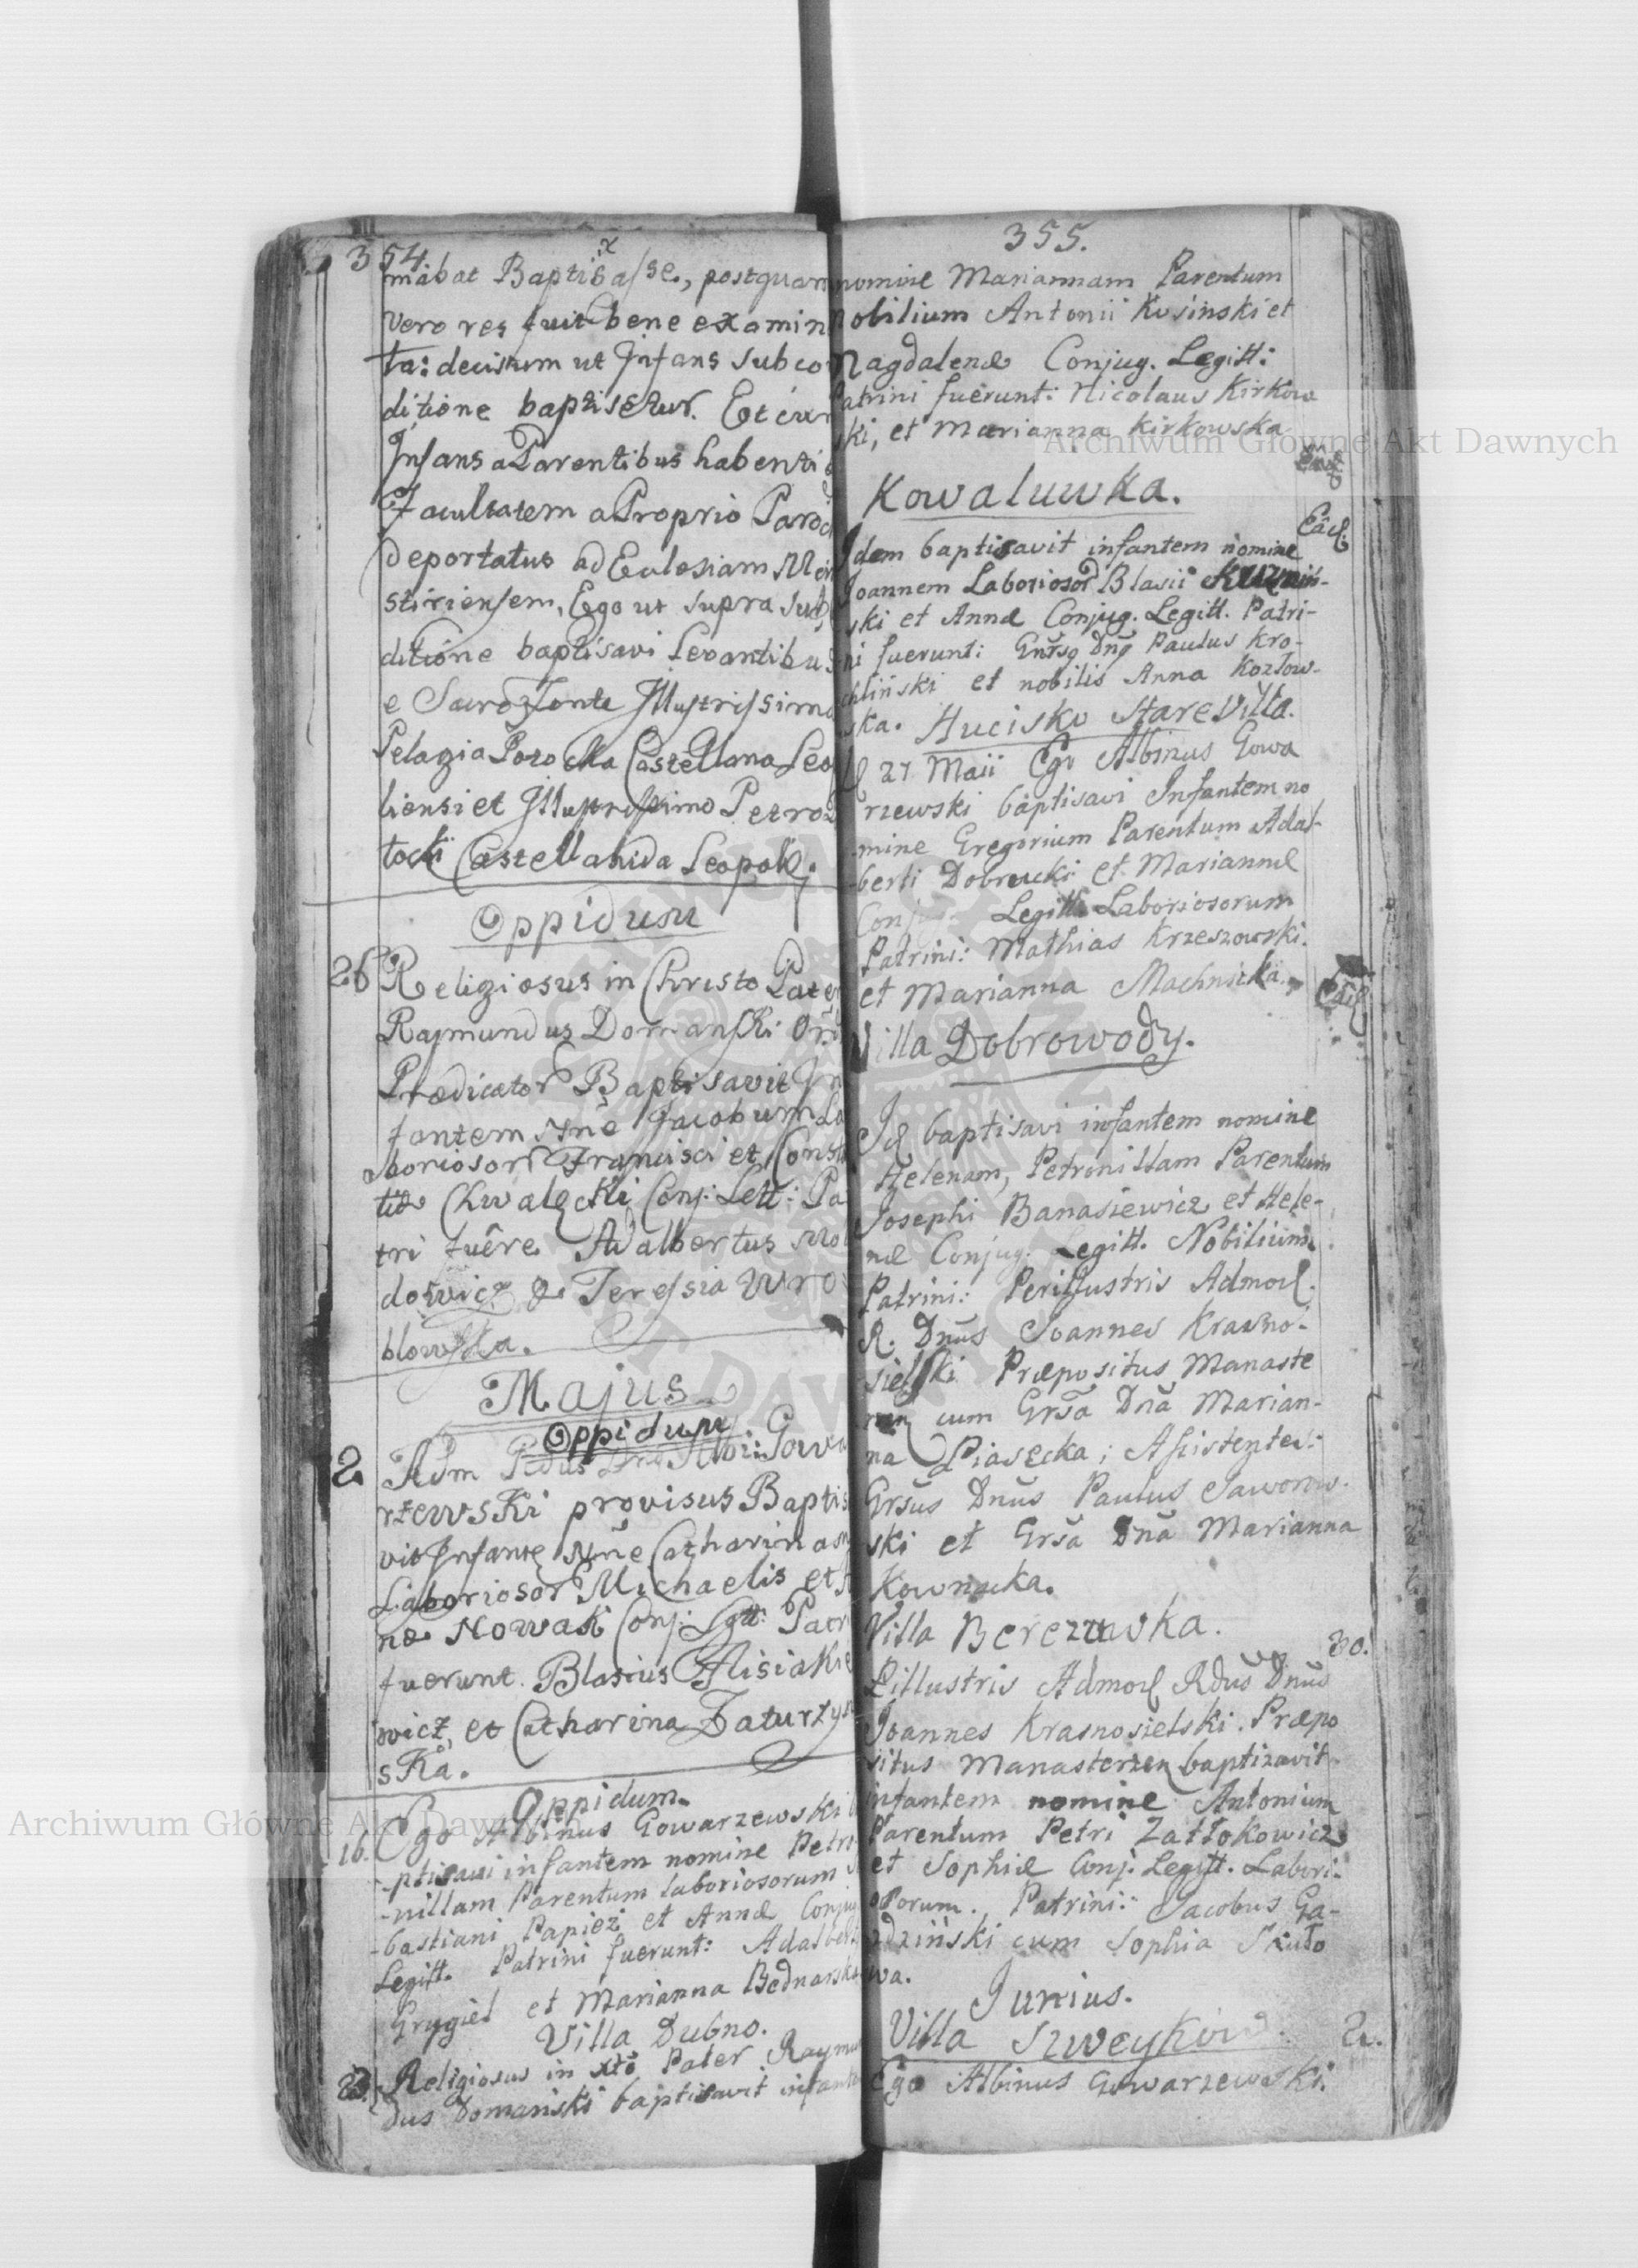 354.
mabat Baptisasse, postquam
vero res fuit bene examin
ta: decisum ut Infans sub co
ditione baptisetur. Et cum
Infans a Parentibus habenti
Facultatem a Proprio Paroc
deportatus ad Eclesiam Mon
stiriensem, Ego ut supra sub
ditione baptisavi Levantibus
e Sacro Fonte Illustrissima
Pelagia Potocka Castellana Leo
liensi et Illustrissimo Petro
tocki Castellanida Leopol.
Oppidum
26 Religiosus in Christo Pater
Raymundus Domanski Ord
Prædicator Baptisavit In
fantem Nñe Jacobum La
boriosor Francisci et Const
tiæ Chwalęcki Conj: Lett: Pa
tri fuêre Adalbertus
dowicz & Teressia Wro
blowska.
Majus
Oppidum
2. Adm Rdus Dns Albi: Gowa
rzewski provisus Baptis
vit Infante Nñe Catharinam
Laborioso Michaelis et A
næ Nowak Conj: Lgtt: Patri
fuerunt. Blasius Misiakie
wicz, et Catharina Zaturzyn
ska.
Oppidum.
16. Ego Albinus Gowarzewski
-ptisavi infantem nomine Petro
-nillam Parentum laboriosorum
-bastiani Papież et Annæ Conjug
Legitt. Patrini fuerunt: Adalbert
Grygiel et Marianna Bednarska
Villa Dubno.
23. Religiosus in Xto Pater Raymun
dus Domański baptisavit infante
355.
nomine Mariannam Parentum
Nobilium Antonii Kosinski et
Magdalenæ Conjug. Legitt:
Patrini fuerunt: Nicolaus Kirkow
ski, et Marianna Kirkowska
Kowaluwka.
Eâd.
Idem baptisavit infantem nomine
Joannem Laborioso Blasii
ski et Annæ Conjug. Legitt. Patri-
ni fuerunt: Gnrsg Dng Paulus Kro-
chliński et nobilis Anna Kozłow-
ska. Hucisko Stare Villa.
D 27 Maii Ego Albinus Gowa
rzewski baptisavi Infantem no
-mine Gregorium Parentum Adal-
-berti Dobrucki et Mariannæ
Conjug. Legitt. Laboriosorum
Patrini: Mathias Krzeszowski.
et Marianna Machnicka.
Eâd
Villa Dobrowody.
Id baptisavi infantem nomine
Helenam, Petronillam Parentum
Josephi Banasiewicz et Hele-
næ Conjug. Legitt. Nobilium.
Patrini: Perillustris Admod.
R. Dnũs Joannes Krasno-
sielski Præpositus Manaste
rzen cum Grsã Dnã Marian-
na Piasecka; Assistentes:
Grsũs Dnũs Paulus Jaworow-
ski et Grsã Dnã Marianna
Kownacka.
Villa Berezuwka.
30.
Pillustris Admod Rdũs Dnũs
Joannes Krasnosielski. Præpo
situs Manasterzen baptizavit
infantem nomine Antonium
Parentum Petri Zattokowicz
et Sophiæ Conj. Legitt. Labori-
osorum. Patrini: Jacobus Ga-
zdziński cum Sophia Skuto
wa.
Junius.
Villa Szweyków.
2.
Ego Albinus Gowarzewski.
Archiwum Główne Akt Dawnych
Archiwum Główne Akt Dawnych